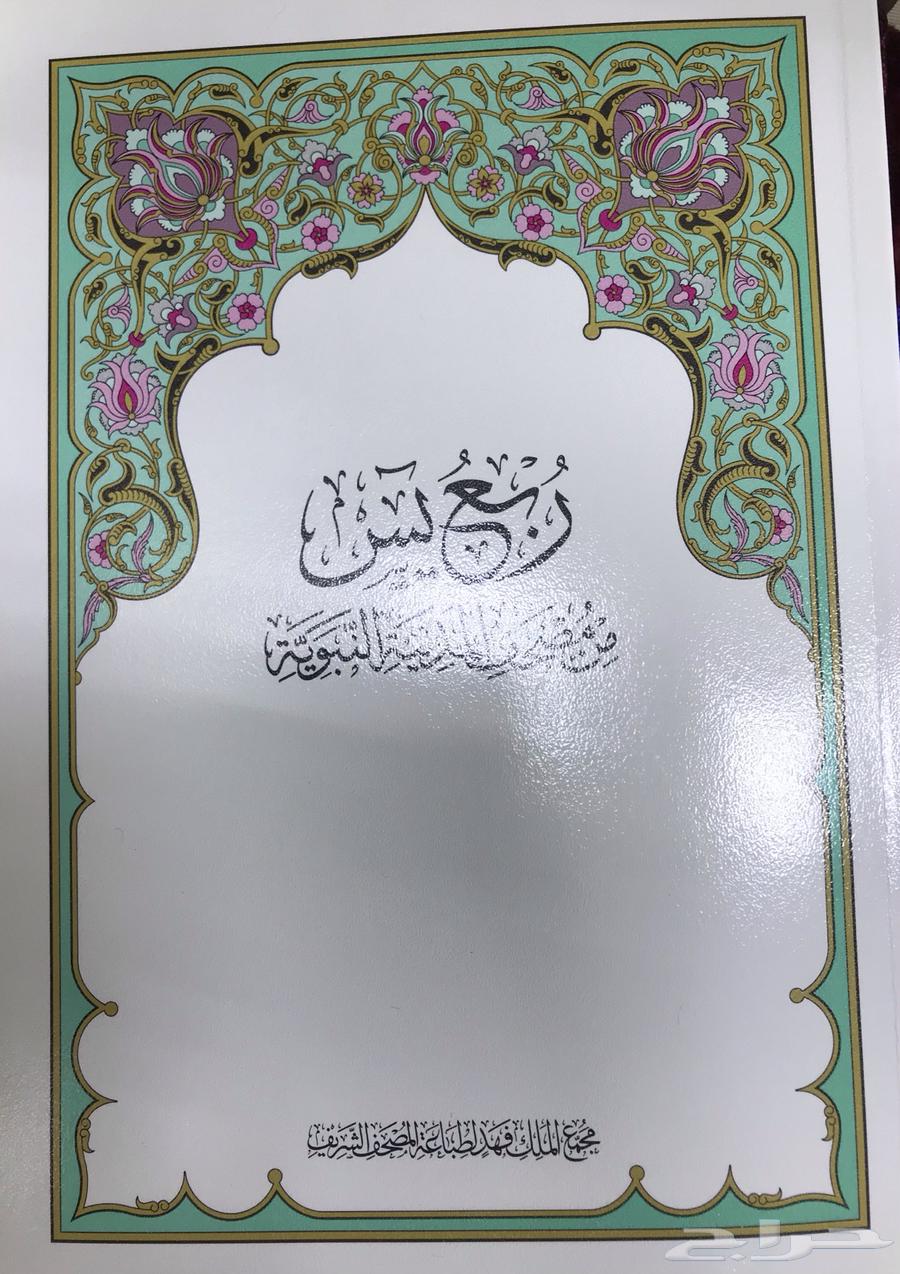 رُبْعُ يسٓ
مِنْ مُصْحَفِ المَدِينَةِ النَّبَوِيَّةِ
مُجَمَّعُ المَلِكِ فَهْدٍ لِطِبَاعَةِ المُصْحَفِ الشَّرِيفِ
حراج